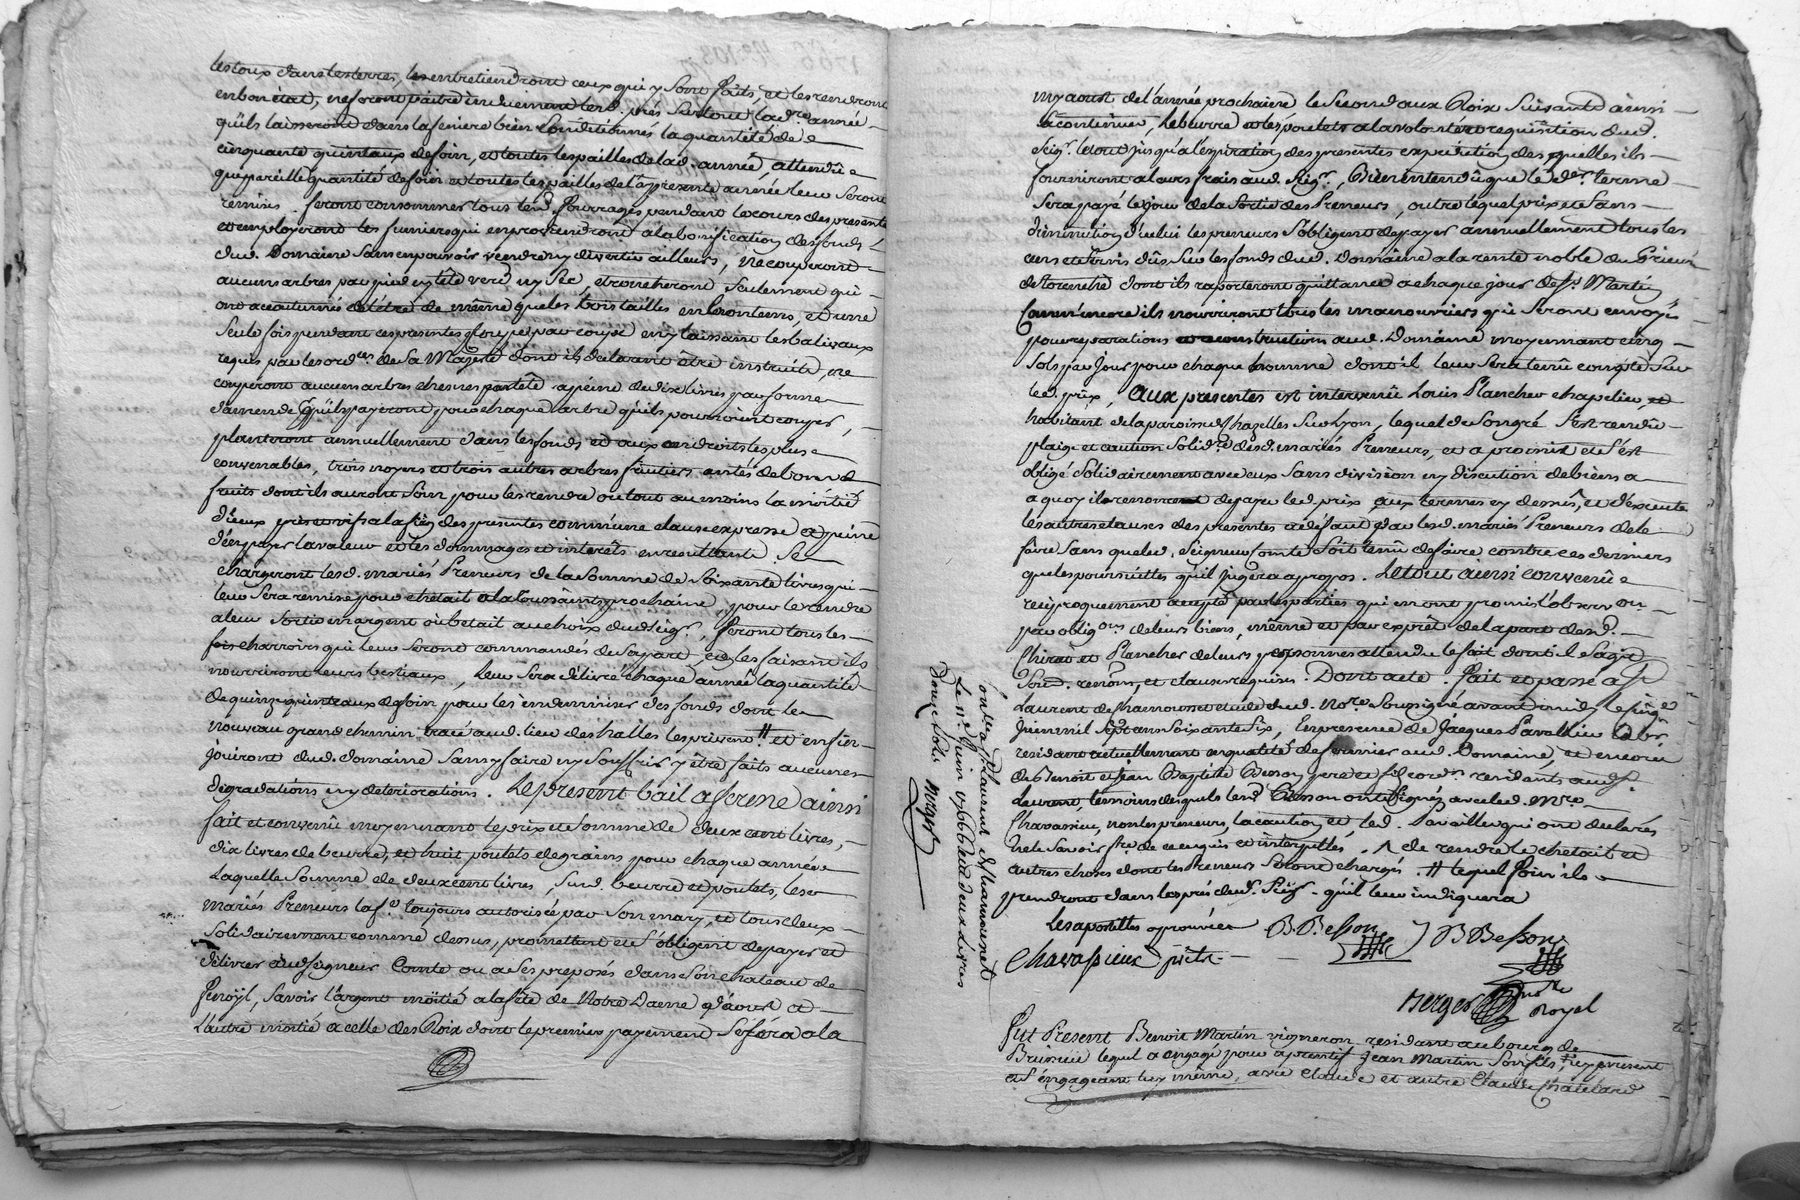 lestoux dans les terres, les entretiendront ceux qui y sont faits, et les rendront
en bon état, ne feront paitre induement les d. prés surtout la d.re année
qu'ils laisseront dans la feniere bien conditionnés la quantité de
cinquante quintaux de foin, et toutes les pailles de lad. année, attendû
que pareille quantité de foin et toutes les pailles de la presente année leur seront
remises. feront consommer tous les d. fourrages pendant le cours des presentes
et employeront les fumiers qui en proviendront a la bonification des fonds
dud. Domaine sans en pouvoir vendre ny divertir ailleurs, ne couperont
aucuns arbres par pied ny tete verd ny sec, etroncheront seulement qui
ont accoutumé de l'être de même que les bois tailles en leurs tems, et d'une
seule fois pendant ces presentes par coupe en y laissant les balivaux
requis par les ord.ces de Sa Majesté dont ils declarent être instruits, ne
couperont aucuns arbres chesnes par tête a peine de dix livres par forme
d'amende qu'ils payeront pour chaque arbre qu'ils pourroient couper,
planteront annuellement dans les fonds et aux endroits les plus
convenables, trois noyers et trois autres arbres fruitiers antés de bons
fruits dont ils auront soin pour les rendre ou tout au moins la moitié
d'iceux pris et vifs a la fin des presentes comm'une clause expresse a peine
d'en payer la valeur et les dommages et interêts en resultants. Se
chargeront les d. mariés Preneurs de la somme de soixante livres qui
leur sera remise pour chetail a la Toussaints prochaine, pour le rendre
a leur sortie en argent ou betail au choix dud. Seig.r, feront tous les
fois charroirs qui leur seront commandés de sa part, et les faisant ils
nourriront leurs bestiaux, leur sera délivré chaque année la quantité
de quinze quintaux de foin pour les indemniser des fonds dont le
nouveau grand chemin tracé aud. lieu des halles les privent # et enfin
jouiront dud. domaine sans y faire ny souffrir y être faits aucunes
degradations ny deteriorations. Le present bail a ferme ainsi
fait et convenû moyennant le prix et somme de deux cent livres,
dix livres de beurre, et huit poulets de grains pour chaque année
Laquelle somme de deux cent livres, sud. beurre et poulets, les
mariés Preneurs la f.e toujours autorisée par son mary, et tous deux
solidairement comme dessus, promettent et s'obligent de payer et
délivrer aud. seigneur Comte ou a ses preposés dans son chateau de
Fenoÿl, savoir l'argent moitié a la fête de Notre Dame d'aoust et
l'autre moitié a celle des Roix dont le premier payement se fera a la
my aoust de l'année prochaine le second aux Roix suivants ainsi
a continuer, le beurre et les poulets a la volonté et requisition dud.
Seig.r le tout jusqu'a l'expiration des presentes expedition des quelles ils
fourniront a leurs frais aud. Seig.r, Bien entendû que le d.er terme
sera payé le jour de la sortie des Preneurs, outre lequel prix et sans
diminution d'icelui les preneurs s'obligent de payer annuellement tous les
cens et servis dûs sur les fonds dud. Domaine a la rente noble du Prieur
de dont ils raporteront quittance a chaque jour de St. Martin
Comm'encore ils nourriront tous les manouvriers qui seront envoyés
pour reparations et reconstructions aud. Domaine moyennant cinq
sols par jour pour chaque homme dont il leur sera tenû compte sur
led. prix, Aux presentes est intervenû Louis Plancher chapelier, et
habitant de la paroisse de Chazelles sur Lyon, lequel de son gré s'est rendû
plaige et caution solid.re desd. mariés Preneurs, et a promis et s'est
obligé solidairement avec eux sans division ny discution de biens a
a quoy il renonce de payer led. prix aux termes cy dessus, et d'executer
les autres clauses des presentes a défaut par lesd. mariés Preneurs de le
faire sans que led. Seigneur Comte soit tenû de faire contre ces derniers
que les poursuittes qu'il jugera a propos. Le tout ainsi convenû
reciproquement accepté par les parties qui en ont promis l'observ.on
par oblig.on de leurs biens, même et par exprêt de la part desd.
Chirat et Plancher de leurs personnes attendu le fait dont il s'agit
Soud. renons, et clauses requises. Dont acte. fait et passé a St
Laurent de Chamousset etude dud. no.re soussigné avant midi le cinq
Juin mil sept cent soixante six, En presence de Jacques Pavallier
residant actuellement en qualité de fermier aud. Domaine, et encore
de Benoit et Jean Baptiste Besson pere et fils cord.rs residants aud. St
Laurent temoins desquels les d. Besson ont signés avec led. m.re
Chavassieu, non les preneurs, la caution et led. Pavallier qui ont declarés
ne le savoir f.re de ce enquis et interpellés, ∧ de rendre le chetail et
autres choses dont les Preneurs seront chargés. # lequel foin ils
prendront dans les prés dud. Seig.r qu'il leur indiquera
Les apostilles aprouvées B. Besson J B Besson
Chavassieux prêtre
Berger no.re Royal
Con.lé a St Laurent de Chamousset
Le 11.e Juin 1766 reçu deux Livres
Douze Sols Berger
Fut Present Benoit Martin vigneron residant au bourg de
Brussieu lequel a engagé pour aprentif Jean Martin son fils, icy present
et s'engageant luy même, avec Claude et autre Claude Chatelard